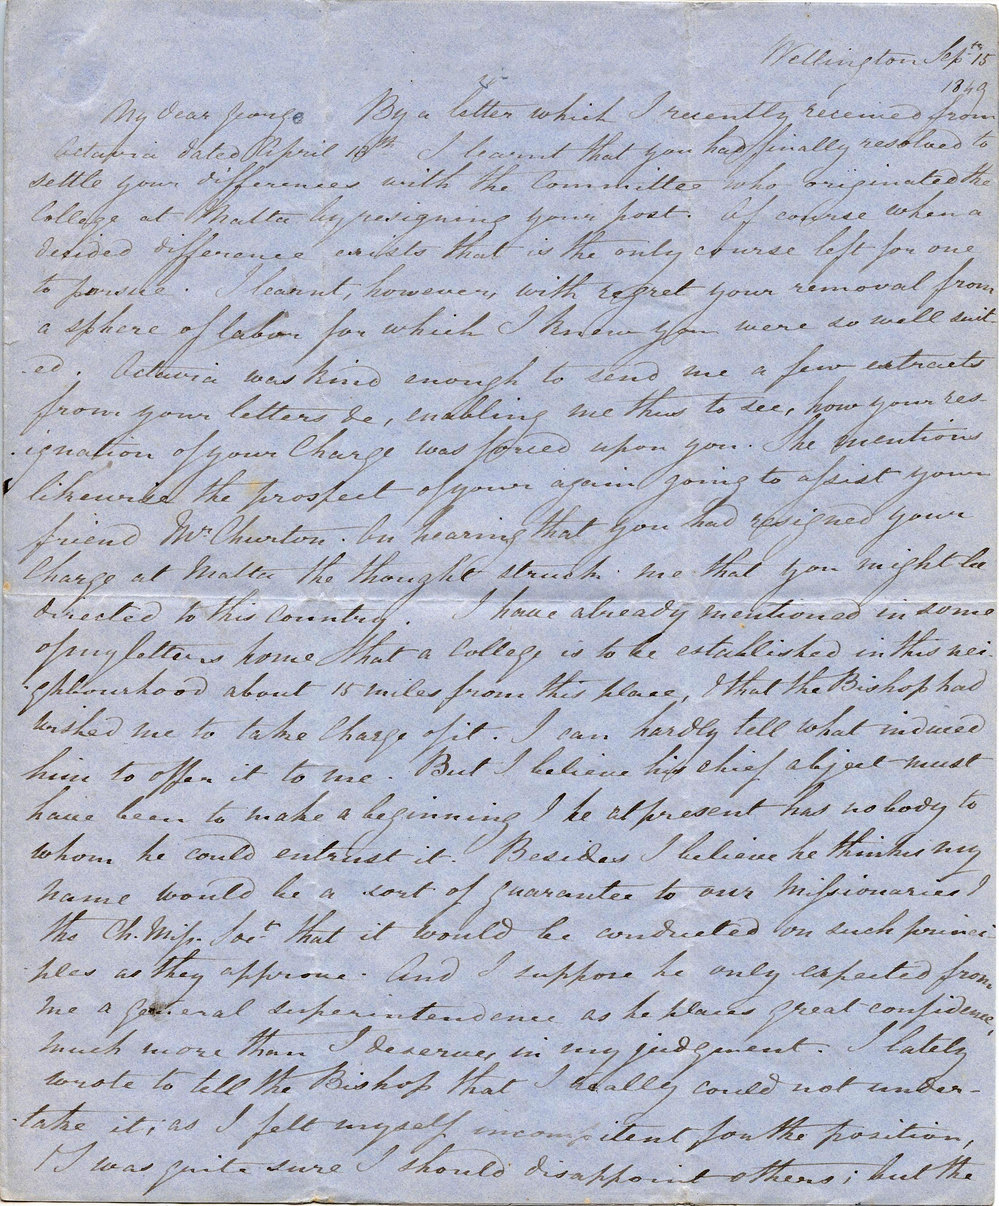 Wellington Septh 15
1849
My dear George By a letter which I recently received from
Octavia dated April 18th I learnt that you had finally resolved to
settle your differences with the Committee who originated the
College at Malta by resigning your post. Of course when a
decided difference exists that is the only course left for one
to pursue. I learnt, however, with regret your removal from
a sphere of labor for which I knew you were so well suit-
ed. Octavia was kind enough to send me a few extracts
from your letters &c, enabling me thus to see, how your res-
ignation of your Charge was forced upon you. She mentions
likewise the prospect of your again going to assist your
friend Mr Churton. On hearing that you had resigned your
Charge at Malta the thought struck me that you might be
directed to this Country. I have already mentioned in some
of my letters home that a College is to be established in this nei-
ghbourhood about 15 miles from this place, & that the Bishop had
wished me to take Charge of it. I can hardly tell what induced
him to offer it to me. But I believe his chief object must
have been to make a beginning & he at present has nobody to
whom he could entrust it. Besides I believe he thinks my
name would be a sort of guarantee to our Missionaries &
the Ch. Miss. Socty that it would be conducted on such princi-
ples as they approve. And I suppose he only expected from
me a general superintendence as he places great confidence,
much more than I deserve, in my judgment. I lately
wrote to tell the Bishop that I really could not under-
take it; as I felt myself incompetent for the position,
& I was quite sure I should disappoint others; but the